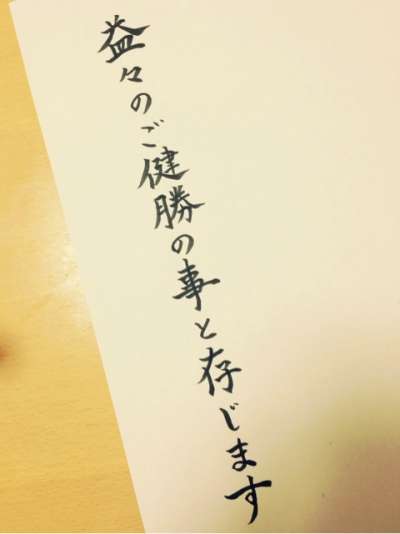 益々のご健勝の事と存じます